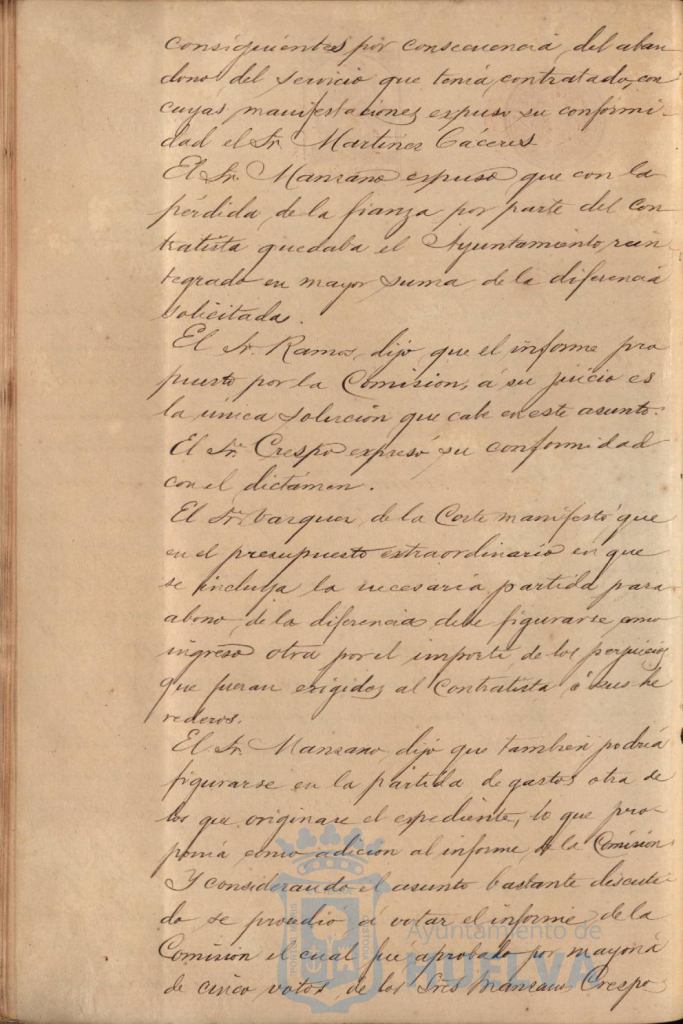 consiguientes por consecuencia del aban
dono del servicio que tenia contratado, con
cuyas manifestaciones expuso su conformi-
dad el Sr. Martinez Cáceres.
El Sr. Manzano expuso que con la
pérdida de la fianza por parte del con
tratista quedaba el Ayuntamiento rein
tegrado en mayor suma de la diferencia
solicitada.
El Sr. Ramos, dijo, que el informe pro
puesto por la Comision, á su juicio es
la única solucion que cabe en este asunto.
El Sr. Crespo expresó su conformidad
con el dictámen.
El Sr. Vazquez de la Corte manifestó que
en el presupuesto extraordinario en que
se incluya la necesaria partida para
abono de la diferencia, debe figurarse como
ingreso otra por el importe de los perjuicios
que fueran exigidos al Contratista ó sus he
rederos.
El Sr. Manzano, dijo que tambien podria
figurarse en la partida de gastos otra de
los que originase el expediente, lo que pro-
ponia como adicion al informe de la Comision
Y considerando el asunto bastante discuti-
do se procedió á votar el informe de la
Comision el cual fué aprobado por mayoria
de cinco votos, de los Sres Manzano, Crespo
Ayuntamiento de
HUELVA